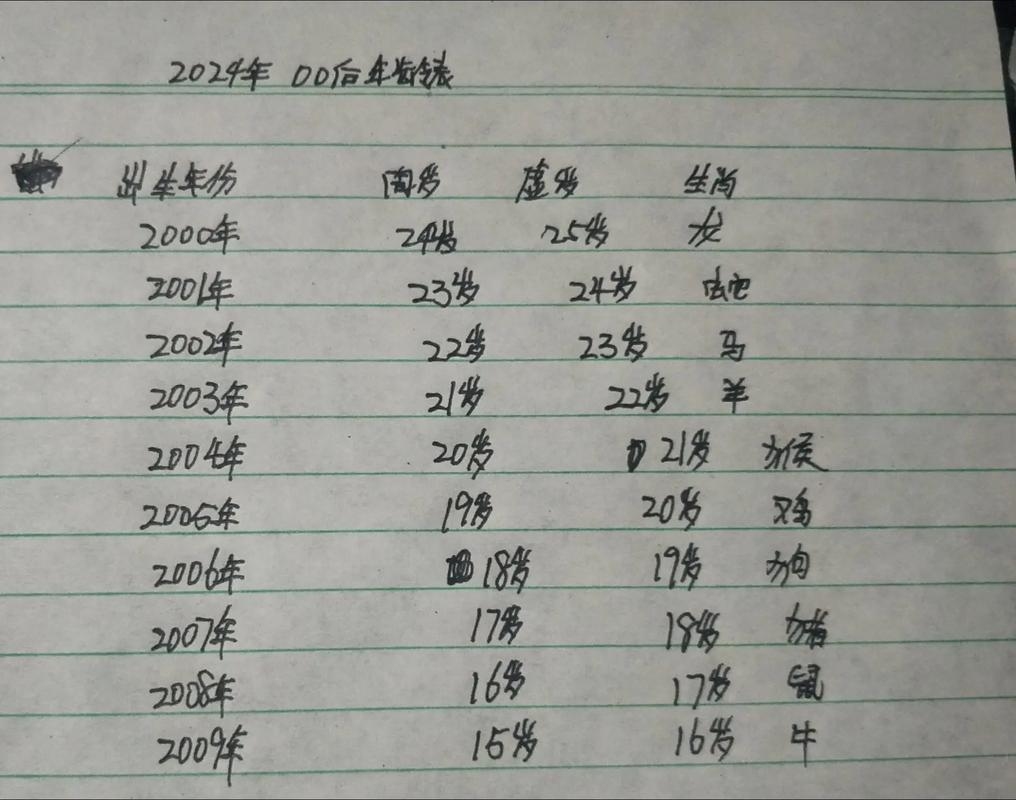 2024年 00后年龄表
出生年份 周岁 虚岁 生肖
2000年 24岁 25岁 龙
2001年 23岁 24岁 蛇
2002年 22岁 23岁 马
2003年 21岁 22岁 羊
2004年 20岁 21岁 猴
2005年 19岁 20岁 鸡
2006年 18岁 19岁 狗
2007年 17岁 18岁 猪
2008年 16岁 17岁 鼠
2009年 15岁 16岁 牛